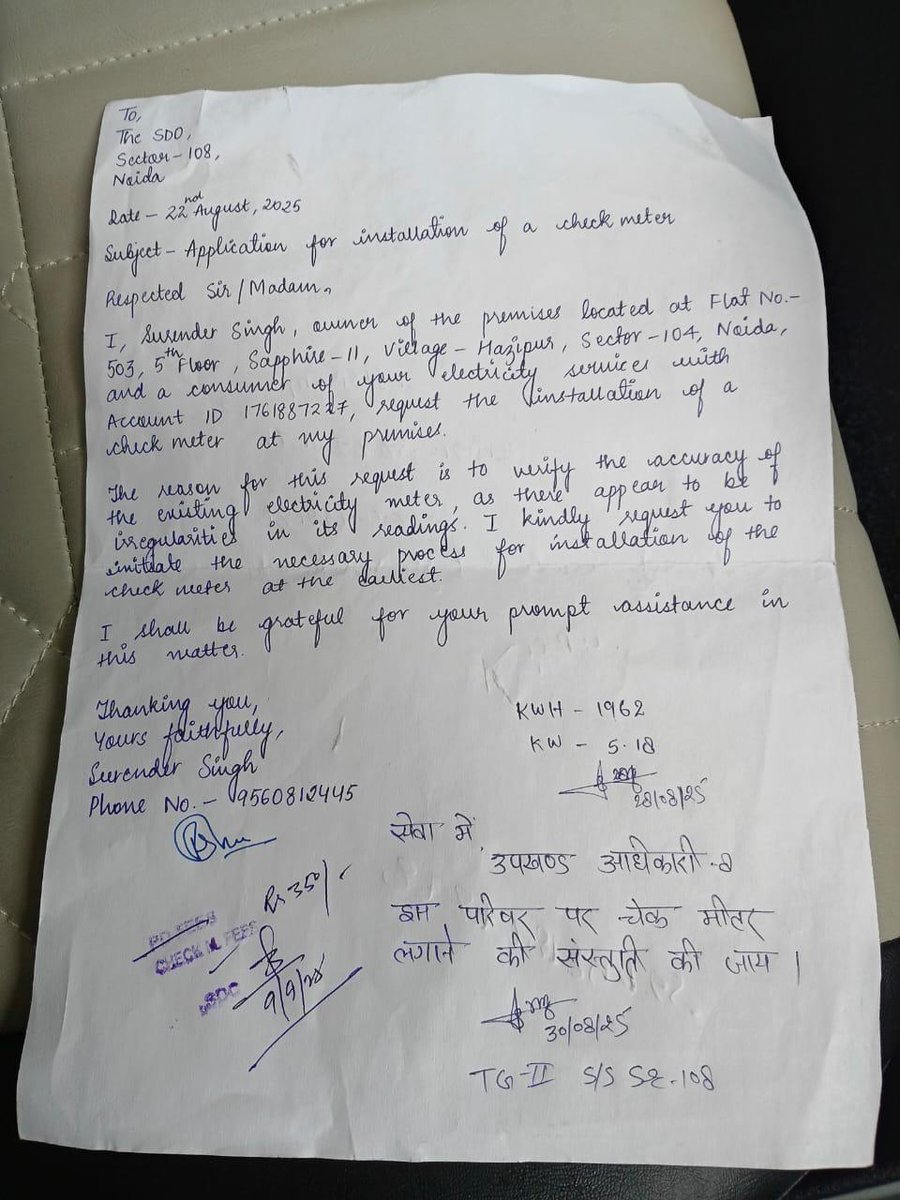 To,
The SDO,
Sector-108,
Noida
Date - 22nd August, 2025
Subject - Application for installation of a check meter
Respected Sir/Madam,
I, Surender Singh, owner of the premises located at Flat No.-
503, 5th Floor, Sapphire-11, Village - Hazipur, Sector-104, Noida,
and a consumer of your electricity services with
Account ID 1761887227, request the installation of a
check meter at my premises.
The reason for this request is to verify the accuracy of
the existing electricity meter, as there appear to be
irregularities in its readings. I kindly request you to
initiate the necessary process for installation of the
check meter at the earliest.
I shall be grateful for your prompt assistance in
this matter.
Thanking you,
Yours faithfully,
Surender Singh
Phone No. - 9560812445
KWH - 1962
KW - 5.18
28/08/25
सेवा में,
उपखण्ड अधिकारी
इस परिसर पर चेक मीटर
लगाने की संस्तुती की जाय।
30/08/25
TG-II S/S Sec-108
Rs 350/-
CHECK M. FEES
SDC
9/9/25